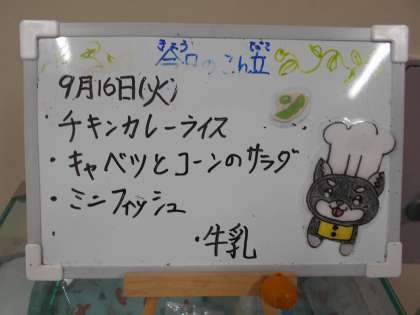 今日のこん立
きょう だて
9月16日(火)
・チキンカレーライス
・キャベツとコーンのサラダ
・ミニフィッシュ
・
・牛乳